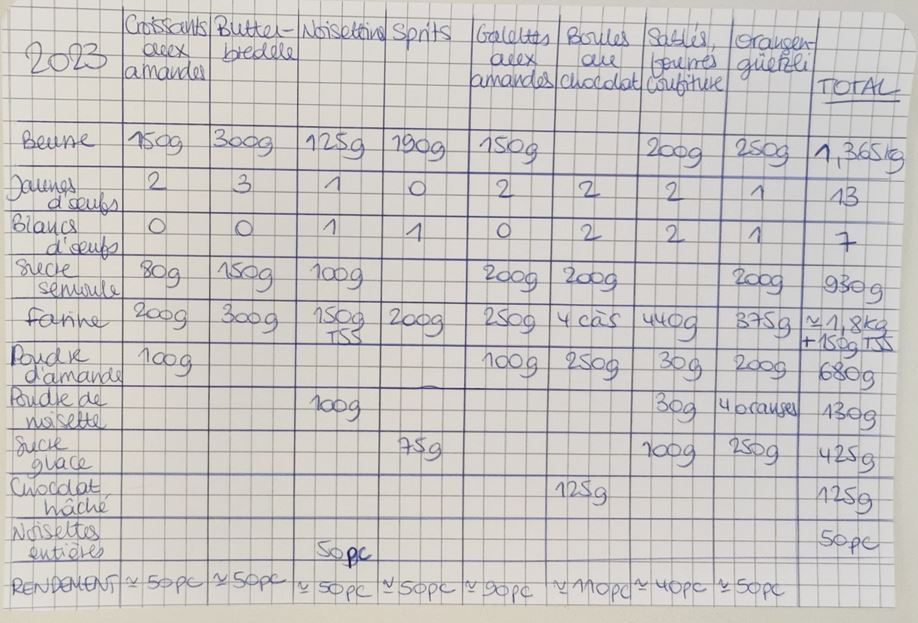 2023 Croissants aux amandes Butter-bredele Noisettins Sprits Galettes aux amandes Boules au chocolat Sablés, fourrés confiture Orangen-güetzli TOTAL
Beurre 150g 300g 125g 190g 150g 200g 250g 1,365kg
Jaunes d'oeufs 2 3 1 0 2 2 2 1 13
Blancs d'oeufs 0 0 1 1 0 2 2 1 7
Sucre semoule 80g 150g 100g 200g 200g 200g 930g
Farine 200g 300g 150g TSS 200g 250g 4 càs 440g 375g ≈1,8kg +150g TSS
Poudre d'amande 100g 100g 250g 30g 200g 680g
Poudre de noisette 100g 30g 4 oranges 130g
Sucre glace 75g 100g 250g 425g
Chocolat hâché 125g 125g
Noisettes entières 50pc 50pc
RENDEMENT ≈50pc ≈50pc ≈50pc ≈50pc ≈90pc ≈110pc ≈40pc ≈50pc